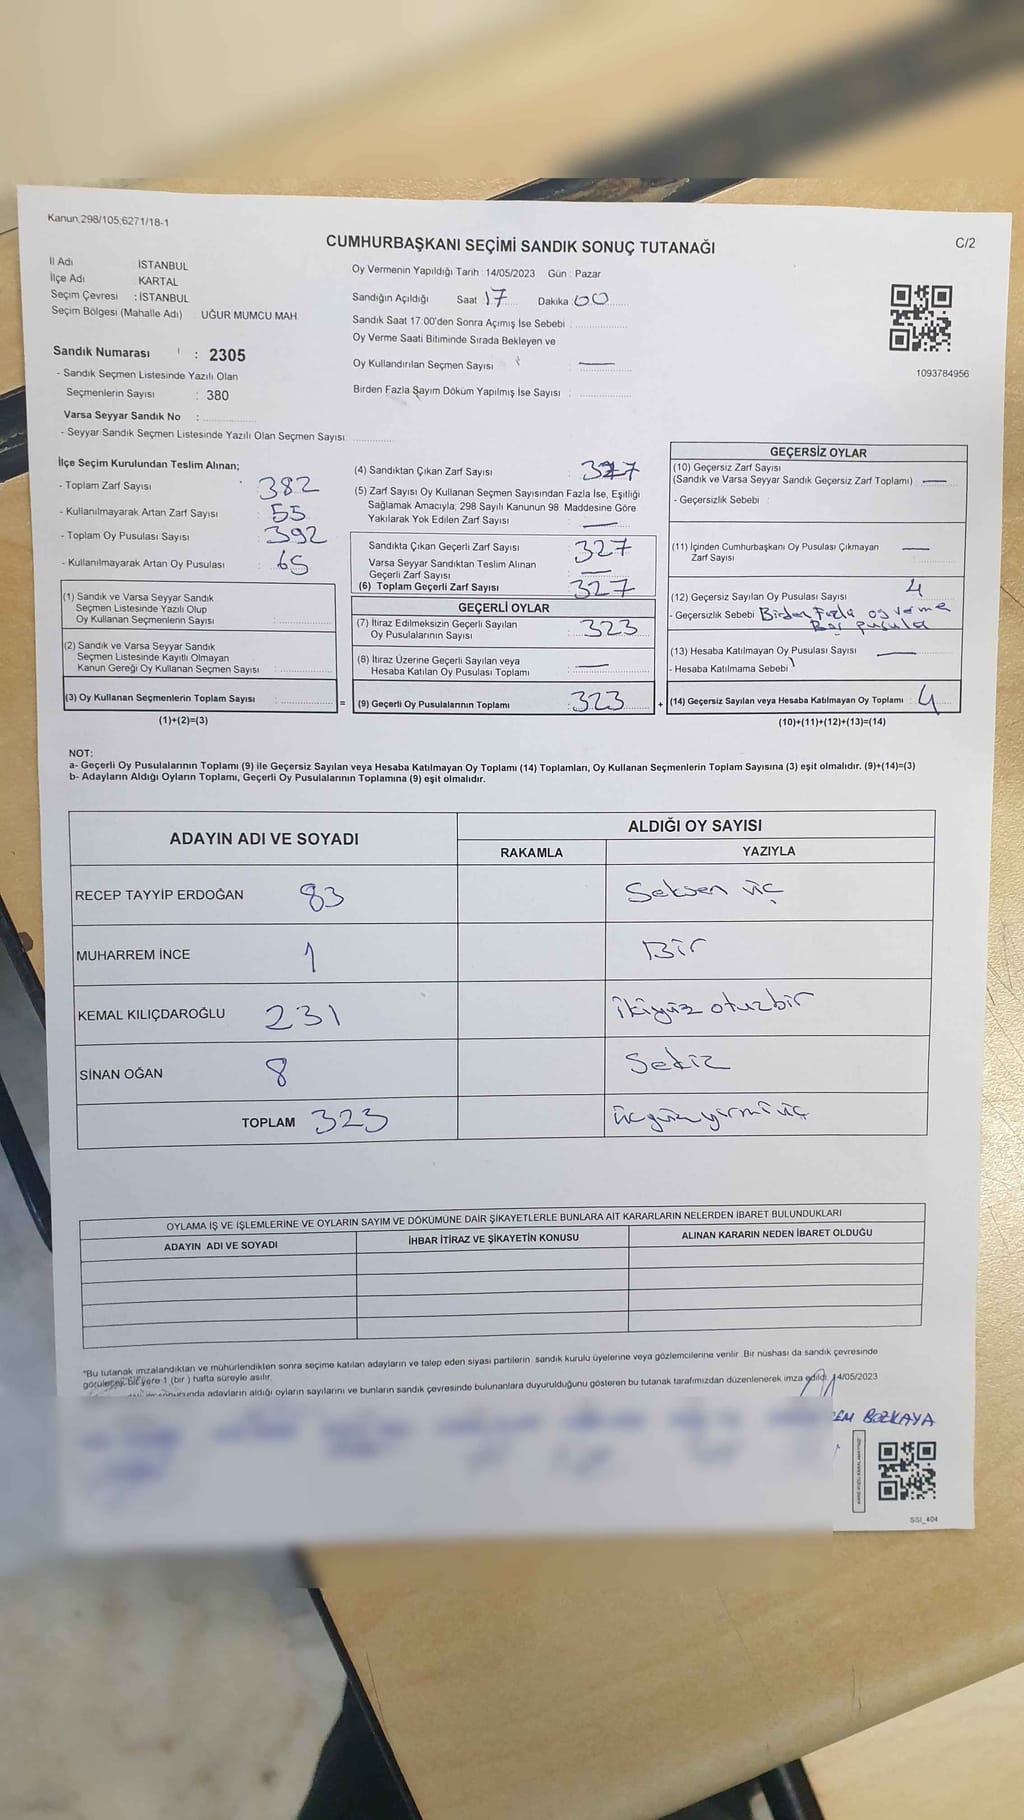 Kanun,298/105,6271/18-1
C/2
CUMHURBAŞKANI SEÇİMİ SANDIK SONUÇ TUTANAĞI
İl Adı İSTANBUL
İlçe Adı KARTAL
Seçim Çevresi : İSTANBUL
Seçim Bölgesi (Mahalle Adı) UĞUR MUMCU MAH
Sandık Numarası : 2305
- Sandık Seçmen Listesinde Yazılı Olan
Seçmenlerin Sayısı : 380
Varsa Seyyar Sandık No :
- Seyyar Sandık Seçmen Listesinde Yazılı Olan Seçmen Sayısı
Oy Vermenin Yapıldığı Tarih : 14/05/2023 Gün : Pazar
Sandığın Açıldığı Saat 17 Dakika : 00
Sandık Saat 17:00'den Sonra Açımış İse Sebebi :
Oy Verme Saati Bitiminde Sırada Bekleyen ve
Oy Kullandırılan Seçmen Sayısı : —
Birden Fazla Sayım Döküm Yapılmış İse Sayısı :
1093784956
İlçe Seçim Kurulundan Teslim Alınan;
- Toplam Zarf Sayısı : 382
- Kullanılmayarak Artan Zarf Sayısı : 55
- Toplam Oy Pusulası Sayısı : 392
- Kullanılmayarak Artan Oy Pusulası : 65
(1) Sandık ve Varsa Seyyar Sandık
Seçmen Listesinde Yazılı Olup
Oy Kullanan Seçmenlerin Sayısı :
(2) Sandık ve Varsa Seyyar Sandık
Seçmen Listesinde Kayıtlı Olmayan
Kanun Gereği Oy Kullanan Seçmen Sayısı :
(3) Oy Kullanan Seçmenlerin Toplam Sayısı :
(1)+(2)=(3)
(4) Sandıktan Çıkan Zarf Sayısı : 327
(5) Zarf Sayısı Oy Kullanan Seçmen Sayısından Fazla İse, Eşitliği
Sağlamak Amacıyla; 298 Sayılı Kanunun 98. Maddesine Göre
Yakılarak Yok Edilen Zarf Sayısı : —
Sandıkta Çıkan Geçerli Zarf Sayısı : 327
Varsa Seyyar Sandıktan Teslim Alınan
Geçerli Zarf Sayısı : —
(6) Toplam Geçerli Zarf Sayısı : 327
GEÇERLİ OYLAR
(7) İtiraz Edilmeksizin Geçerli Sayılan
Oy Pusulalarının Sayısı : 323
(8) İtiraz Üzerine Geçerli Sayılan veya
Hesaba Katılan Oy Pusulası Toplamı : —
= (9) Geçerli Oy Pusulalarının Toplamı : 323
GEÇERSİZ OYLAR
(10) Geçersiz Zarf Sayısı
(Sandık ve Varsa Seyyar Sandık Geçersiz Zarf Toplamı) : —
- Geçersizlik Sebebi :
(11) İçinden Cumhurbaşkanı Oy Pusulası Çıkmayan
Zarf Sayısı : —
(12) Geçersiz Sayılan Oy Pusulası Sayısı : 4
- Geçersizlik Sebebi Birden Fazla oy verme
Boş pusula
(13) Hesaba Katılmayan Oy Pusulası Sayısı : —
- Hesaba Katılmama Sebebi
+ (14) Geçersiz Sayılan veya Hesaba Katılmayan Oy Toplamı : 4
(10)+(11)+(12)+(13)=(14)
NOT:
a- Geçerli Oy Pusulalarının Toplamı (9) ile Geçersiz Sayılan veya Hesaba Katılmayan Oy Toplamı (14) Toplamları, Oy Kullanan Seçmenlerin Toplam Sayısına (3) eşit olmalıdır. (9)+(14)=(3)
b- Adayların Aldığı Oyların Toplamı, Geçerli Oy Pusulalarının Toplamına (9) eşit olmalıdır.
ADAYIN ADI VE SOYADI
ALDIĞI OY SAYISI
RAKAMLA YAZIYLA
RECEP TAYYİP ERDOĞAN 83 Seksen üç
MUHARREM İNCE 1 Bir
KEMAL KILIÇDAROĞLU 231 ikiyüz otuzbir
SİNAN OĞAN 8 Sekiz
TOPLAM 323 üçyüzyirmiüç
OYLAMA İŞ VE İŞLEMLERİNE VE OYLARIN SAYIM VE DÖKÜMÜNE DAİR ŞİKAYETLERLE BUNLARA AİT KARARLARIN NELERDEN İBARET BULUNDUKLARI
ADAYIN ADI VE SOYADI İHBAR İTİRAZ VE ŞİKAYETİN KONUSU ALINAN KARARIN NEDEN İBARET OLDUĞU
*Bu tutanak imzalandıktan ve mühürlendikten sonra seçime katılan adayların ve talep eden siyasi partilerin sandık kurulu üyelerine veya gözlemcilerine verilir. Bir nüshası da sandık çevresinde
görülecek bir yere 1 (bir ) hafta süreyle asılır.
adayların aldığı oyların sayılarını ve bunların sandık çevresinde bulunanlara duyurulduğunu gösteren bu tutanak tarafımızdan düzenlenerek imza edildi. 14/05/2023
BOZKAYA
SSİ_404